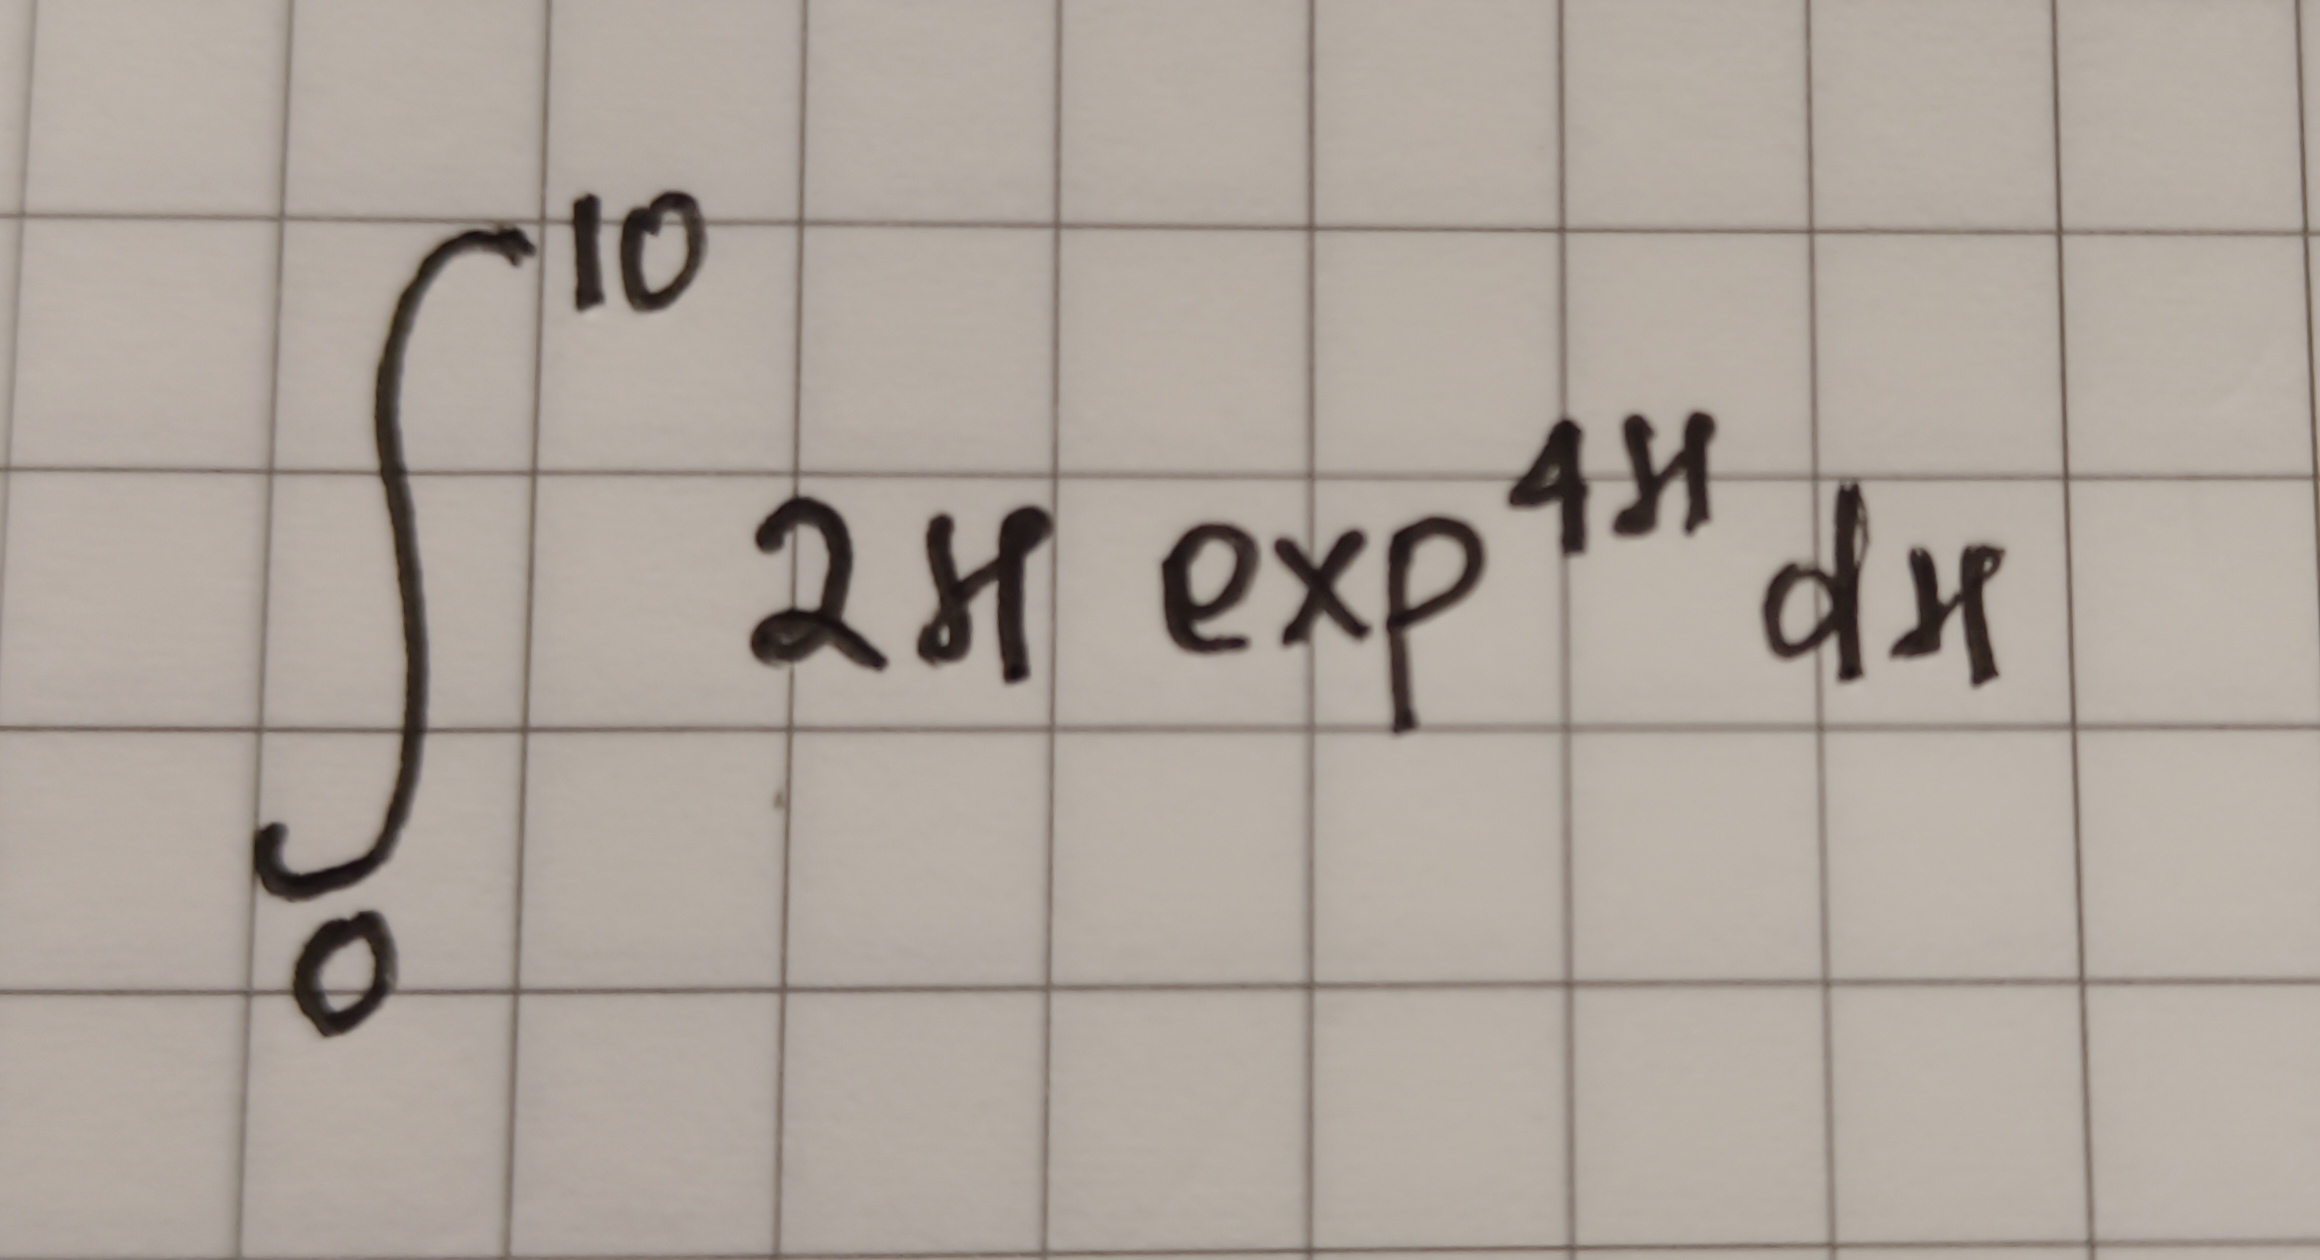 ∫₀¹⁰ 2x exp⁴ˣ dx